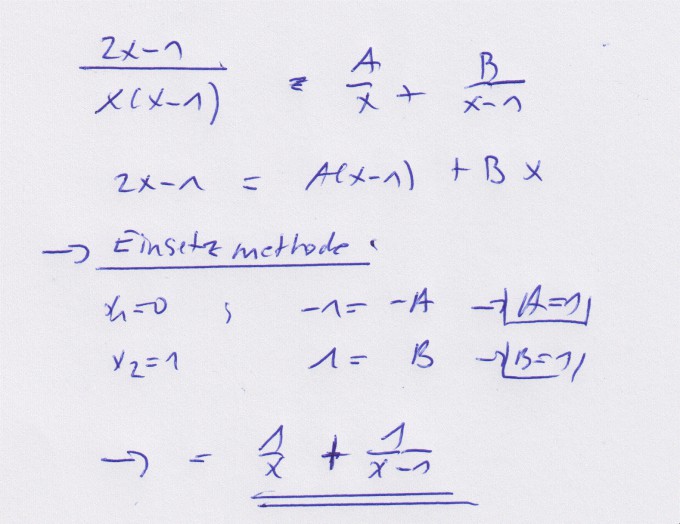 (2x-1)/(x(x-1)) = A/x + B/(x-1)
2x-1 = A(x-1) + B x
→ Einsetzmethode:
x₁=0 ; -1= -A → A=1
x₂=1 1= B → B=1
→ = 1/x + 1/(x-1)